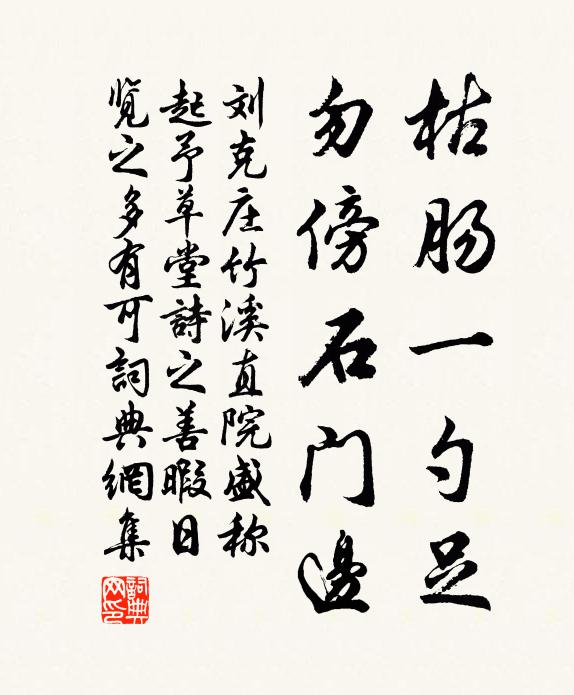 枯肠一勺足
勿傍石门邊
刘克庄竹溪直院盛称
起予草堂詩之善暇日
览之多有可詞典網集
詞典網印